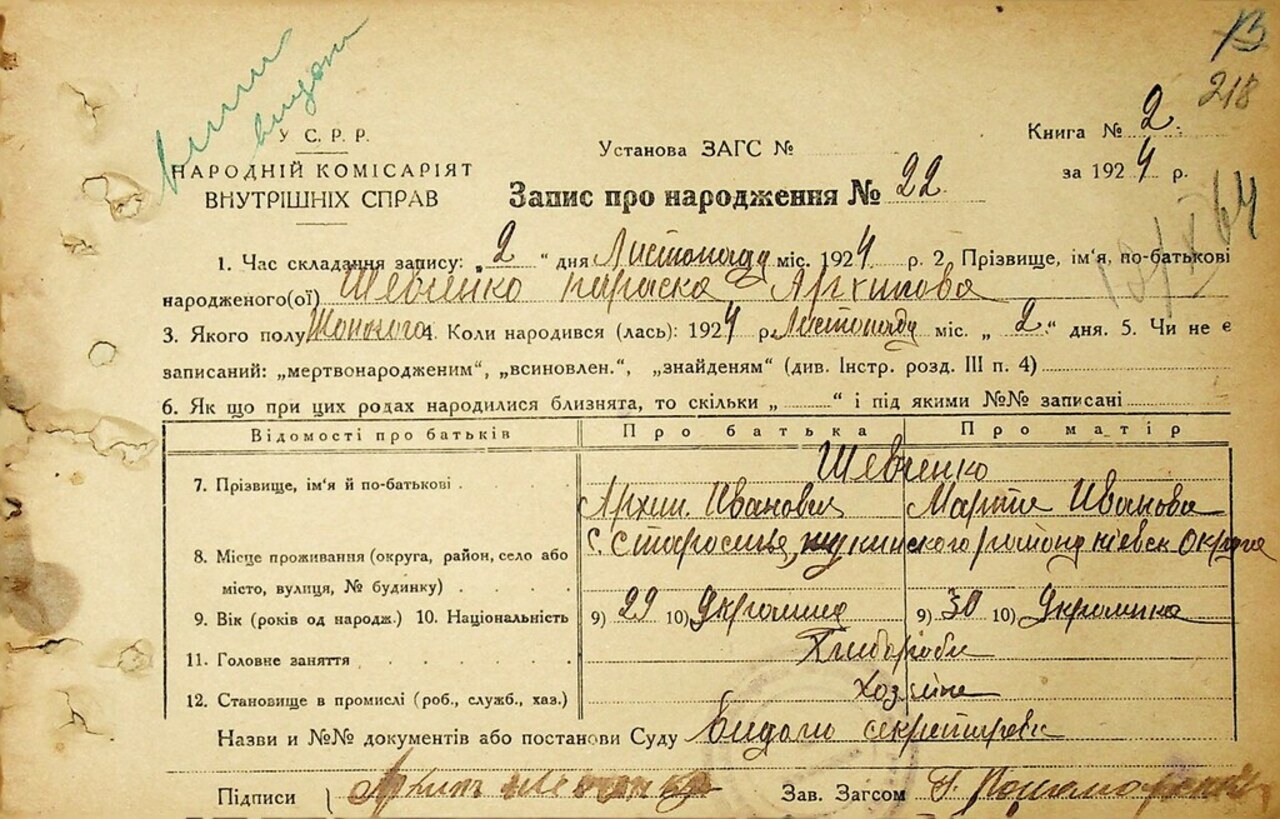 витяг
видан
13
218
У С. Р. Р.
НАРОДНІЙ КОМІСАРІЯТ
ВНУТРІШНІХ СПРАВ
Установа ЗАГС №
Книга № 2.
за 1924 р.
Запис про народження № 22
1. Час складання запису: „2“ дня Листопаду міс. 1924 р. 2. Прізвище, ім'я, по-батькові
народженого(ої) Шевченко Параска Архипова
3. Якого полу Жонского 4. Коли народився (лась): 1924 р. Листопаду міс. „2“ дня. 5. Чи не є
записаний: „мертвонародженим“, „всиновлен.“, „знайденям“ (див. Інстр. розд. III п. 4)
6. Як що при цих родах народилися близнята, то скільки „ “ і під якими №№ записані
Відомості про батьків Про батька Про матір
Шевченко
7. Прізвище, ім'я й по-батькові Архип Иванович Марта Иванова
8. Місце проживання (округа, район, село або с. Староселье, района Киевск Округа
місто, вулиця, № будинку)
9. Вік (років од народж.) 10. Національність 9) 29 10) Украинец 9) 30 10) Украинка
11. Головне заняття Хлибороби
12. Становище в промислі (роб., служб., хаз.) Хозяине
Назви и №№ документів або постанови Суду Видано
Підписи Архип Шевченко Зав. Загсом